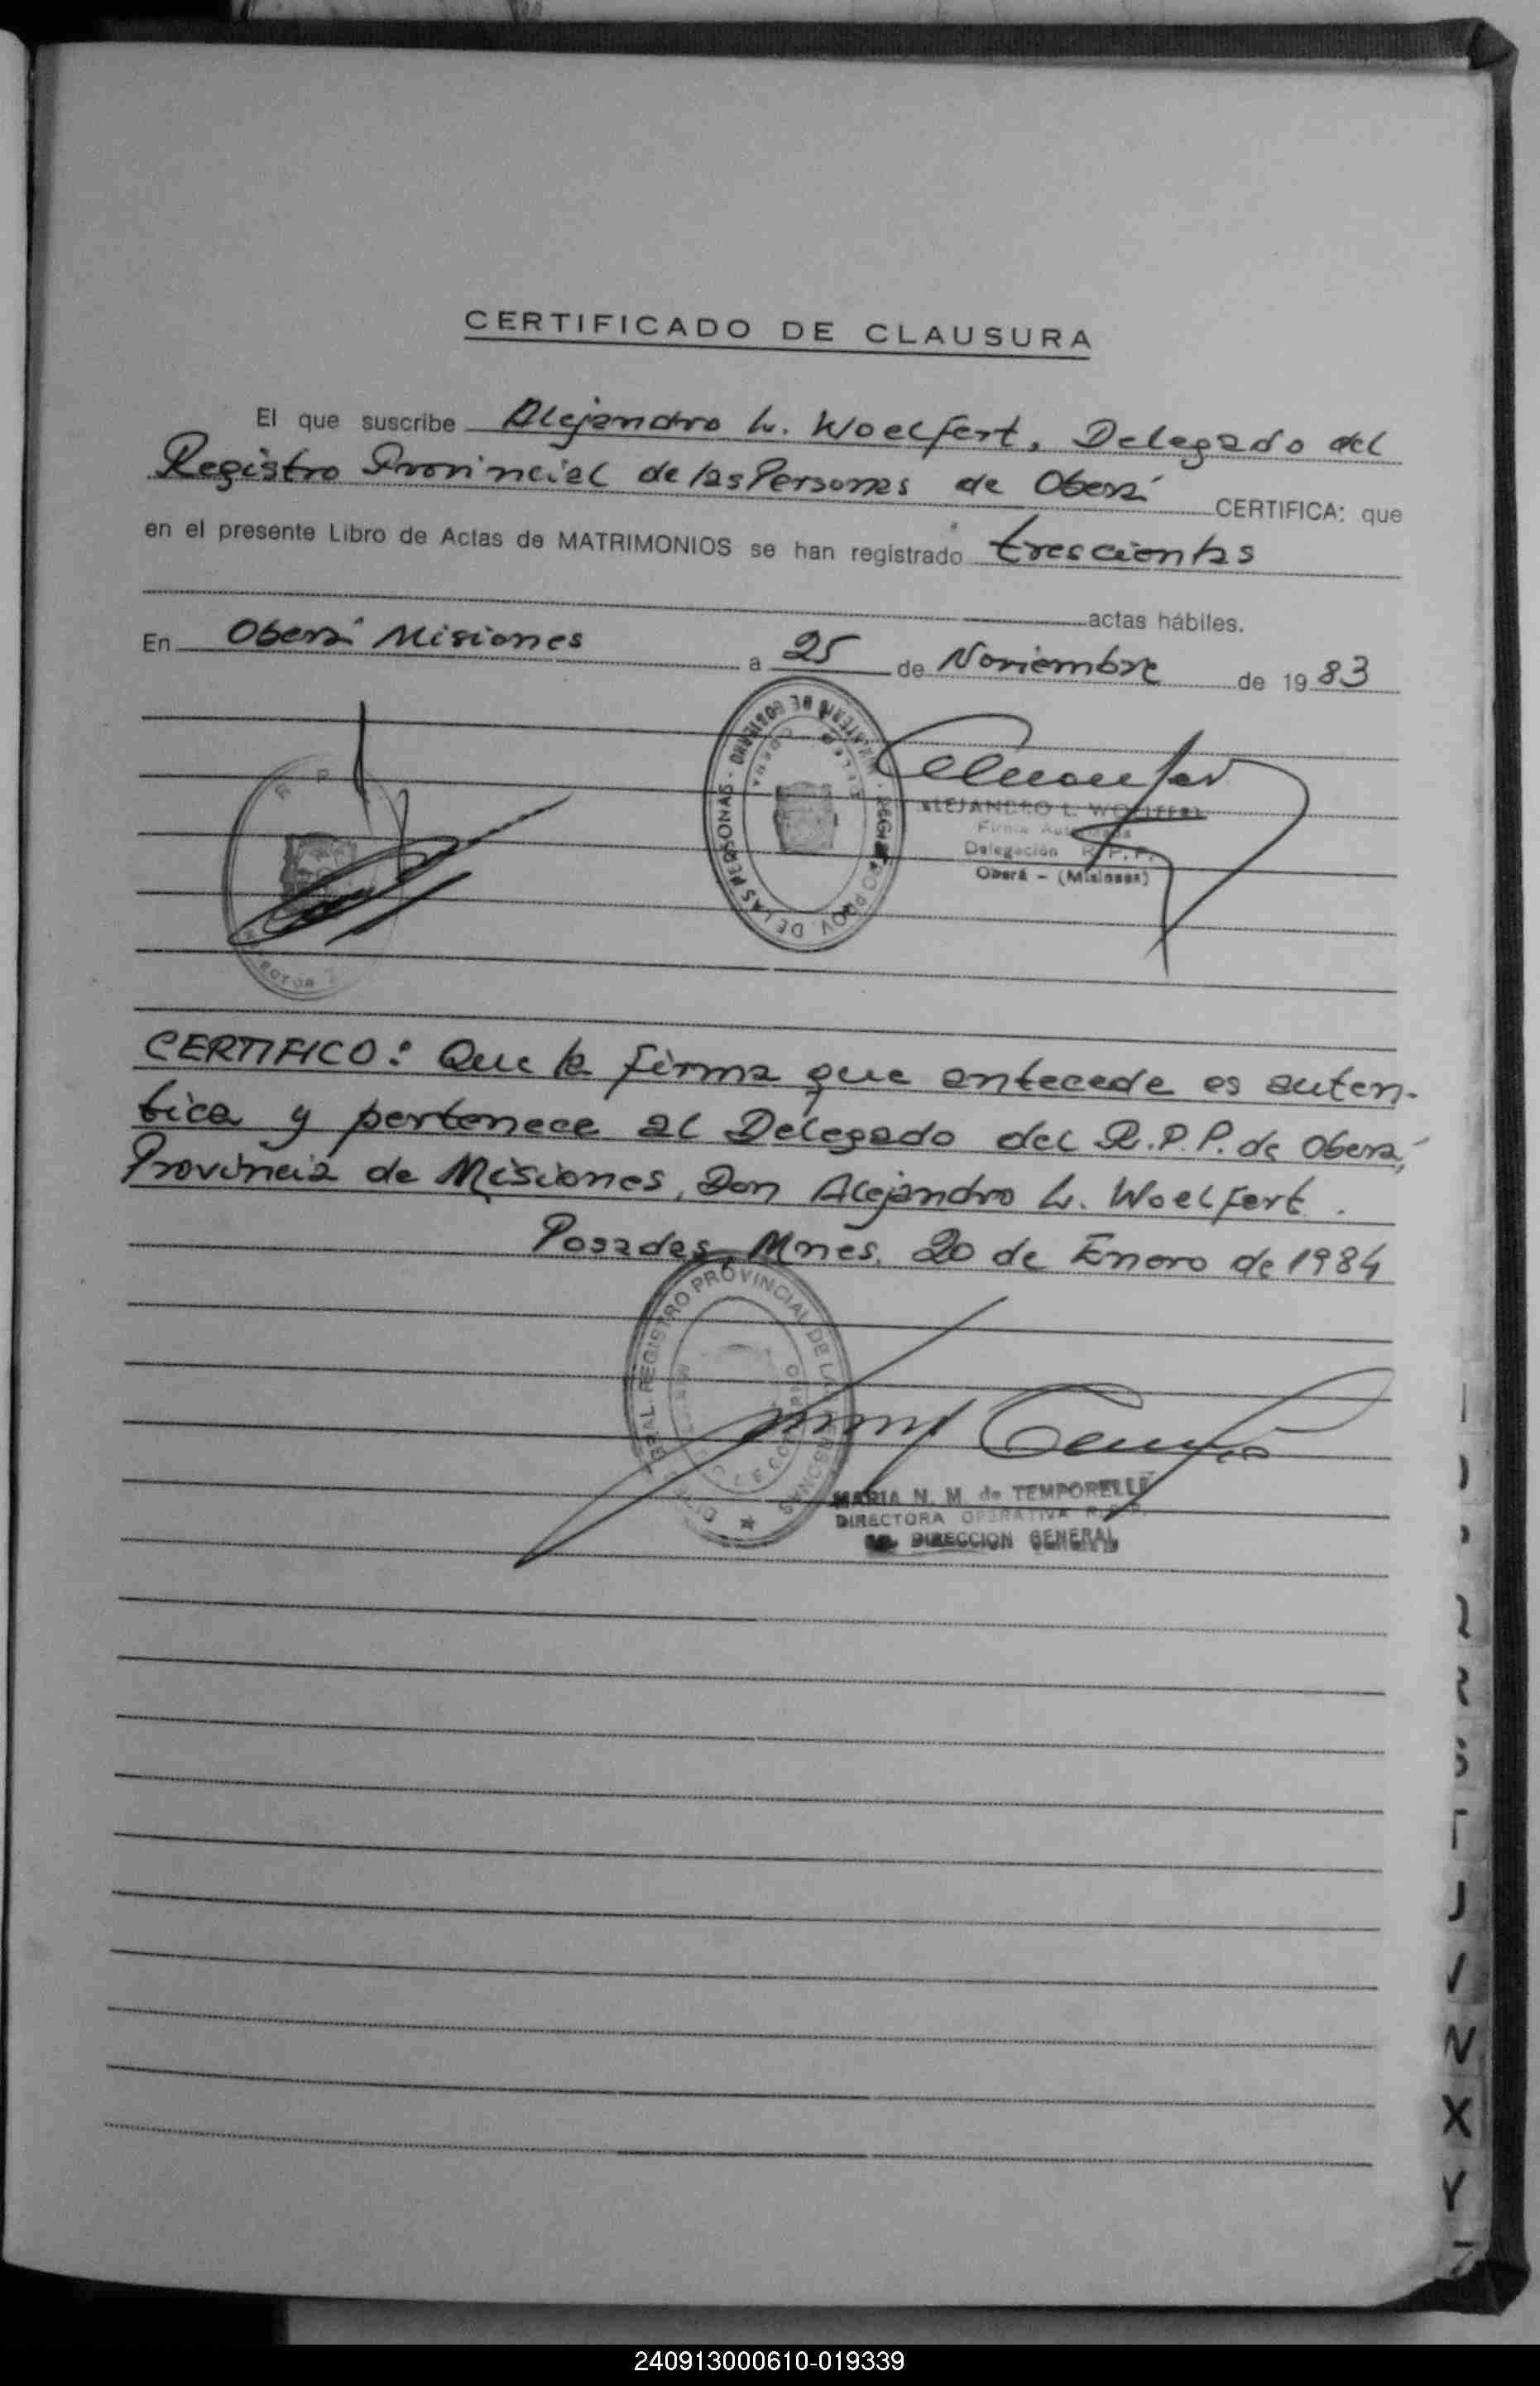 CERTIFICADO DE CLAUSURA
El que suscribe Alejandro L. Woelfert, Delegado del
Registro Provincial de las Personas de Oberá CERTIFICA: que
en el presente Libro de Actas de MATRIMONIOS se han registrado trescientas
actas hábiles.
En Oberá Misiones a 25 de Noviembre de 1983
MINISTERIO DE GOBIERNO - REGISTRO PROV. DE LAS PERSONAS
ALEJANDRO L. WOELFFERT
Firma Autorizada
Delegación R.P.P.
Oberá - (Misiones)
CERTIFICO: Que la firma que antecede es auten-
tica y pertenece al Delegado del R.P.P. de Oberá,
Provincia de Misiones, Don Alejandro L. Woelfert.
Posadas, Mnes, 20 de Enero de 1984
GRAL. REGISTRO PROVINCIAL DE LAS PERSONAS
MARIA N. M. de TEMPORELLI
DIRECTORA OPERATIVA R.P.P.
DIRECCION GENERAL
R
S
T
J
V
N
X
Y
Z
240913000610-019339